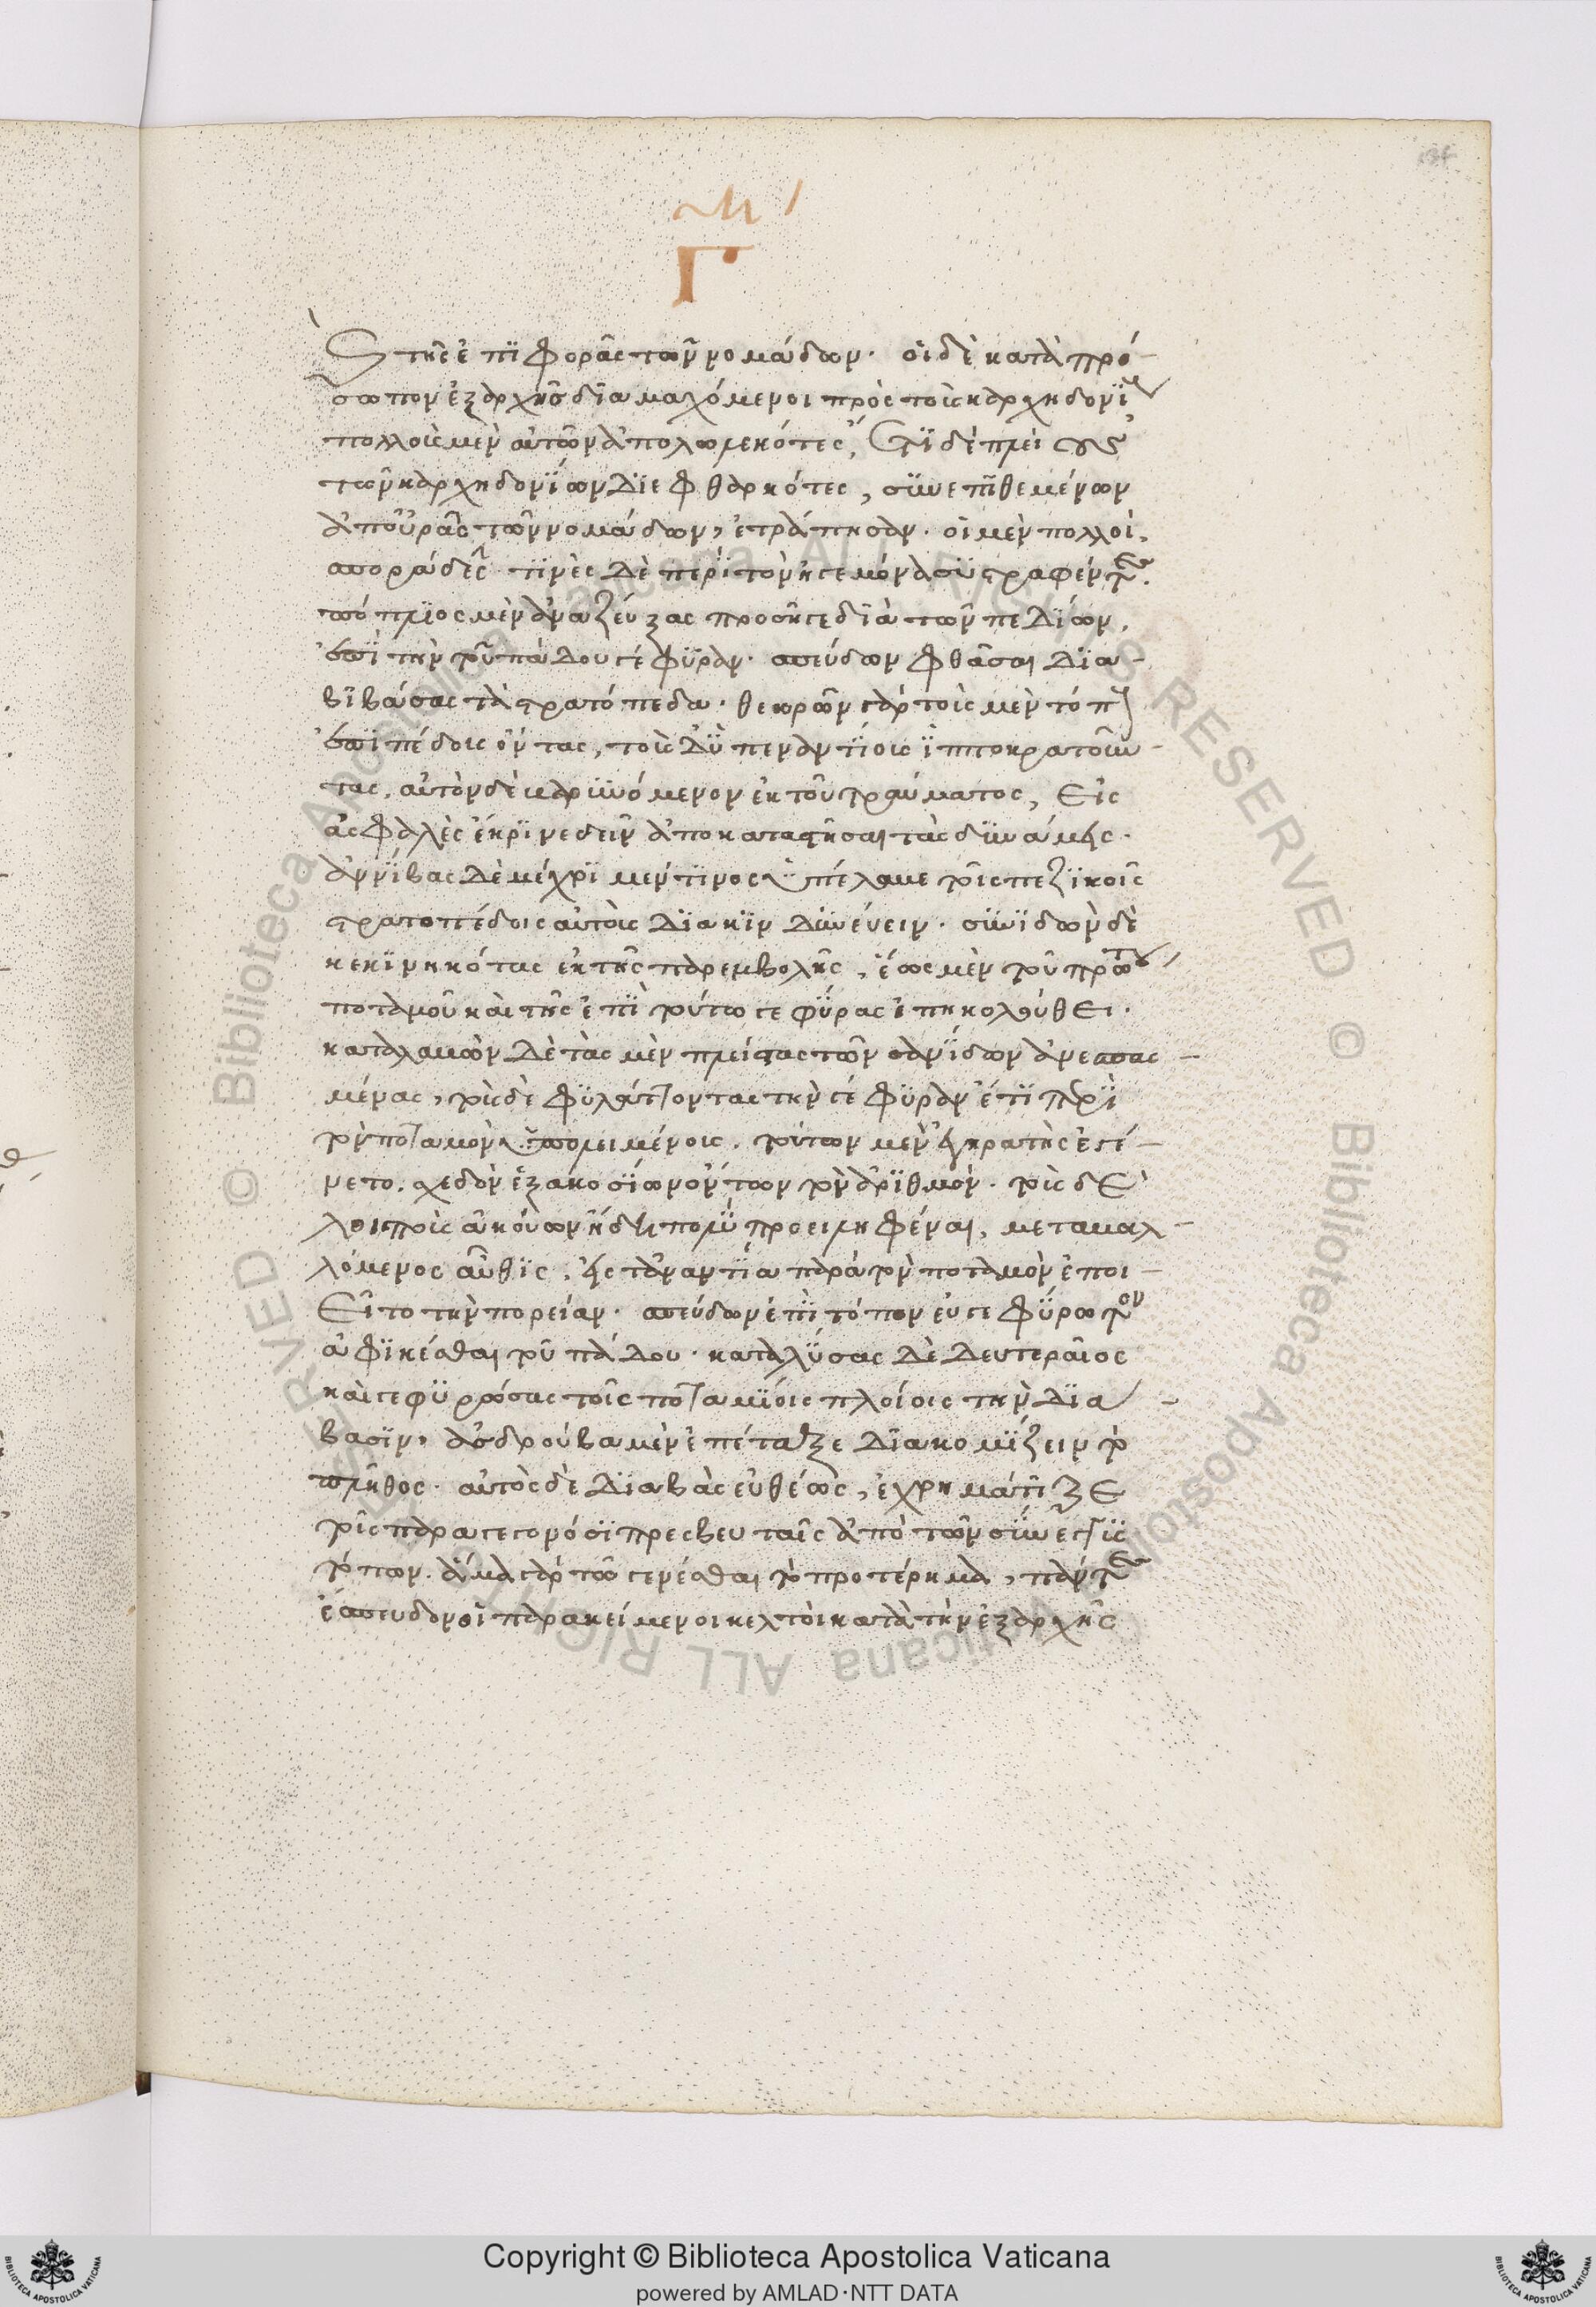 Γ
τῆς ἐπιφορᾶς τῶν νομάδων. οἱ δὲ κατὰ πρό-
σωπον ἐξ ἀρχῆς διαμαχόμενοι πρὸς τοὺς καρχηδονί
πολλοὺς μὲν αὐτῶν ἀπολωλεκότες, ἔτι δὲ πλείους
τῶν καρχηδονίων διεφθαρκότες, συνεπιθεμένων
ἀπ' οὐρᾶς τῶν νομάδων, ἐτράπησαν. οἱ μὲν πολλοὶ,
σποράδες. τινὲς δὲ περὶ τὸν ἡγεμόνα συστραφέντες.
πόπλιος μὲν ἀναζεύξας προσῆγε διὰ τῶν πεδίων,
ἐπὶ τὴν τοῦ πάδου γέφυραν. σπεύδων φθᾶσαι δια-
βιβάσας τὰ στρατόπεδα. θεωρῶν γὰρ τοὺς μὲν τόπους
ἐπιπέδους ὄντας, τοὺς δ' ὑπεναντίους ἱπποκρατοῦν-
τας. αὐτὸν δὲ βαρυνόμενον ἐκ τοῦ τραύματος, εἰς
ἀσφαλὲς ἔκρινε δεῖν ἀποκαταστῆσαι τὰς δυνάμεις.
ἀννίβας δὲ μέχρι μέν τινος ὑπέλαβε τοῖς πεζικοῖς
στρατοπέδοις αὐτοὺς διακινδυνεύειν. συνιδὼν δὲ
κεκινηκότας ἐκ τῆς παρεμβολῆς, ἕως μὲν τοῦ πρώτου
ποταμοῦ καὶ τῆς ἐπὶ τούτω γεφύρας ἐπηκολούθει.
καταλαβὼν δὲ τὰς μὲν πλείστας τῶν σανίδων ἀνεσπασ-
μένας, τοὺς δὲ φυλάττοντας τὴν γέφυραν ἔτι περὶ
τὸν ποταμὸν ὑπολειμένους. τούτων μὲν ἐγκρατὴς ἐγέ-
νετο. σχεδὸν ἑξακοσίων ὄντων τὸν ἀριθμόν. τοὺς δὲ
λοιποὺς ἀκούων ἤδη πολὺ προειληφέναι, μεταβαλ-
λόμενος αὖθις, εἰς τἀναντία παρὰ τὸν ποταμὸν ἐποι-
εῖτο τὴν πορείαν. σπεύδων ἐπὶ τόπον εὐγεφύρωτον
ἀφικέσθαι τοῦ πάδου. καταλύσας δὲ δευτεραῖος
καὶ γεφυρώσας τοῖς ποταμίοις πλοίοις τὴν διά-
βασιν, ἀσδρούβα μὲν ἐπέταξε διακομίζειν τὸ
πλῆθος. αὐτὸς δὲ διαβὰς εὐθέως, ἐχρημάτιζε
τοῖς παραγεγονόσι πρεσβευταῖς ἀπὸ τῶν σύνεγγυς
τόπων. ἅμα γὰρ τῶ γενέσθαι τὸ προτέρημα, πάντες
ἔσπευδον οἱ παρακείμενοι κελτοὶ κατὰ τὴν ἐξ ἀρχῆς
Copyright © Biblioteca Apostolica Vaticana
powered by AMLAD·NTT DATA